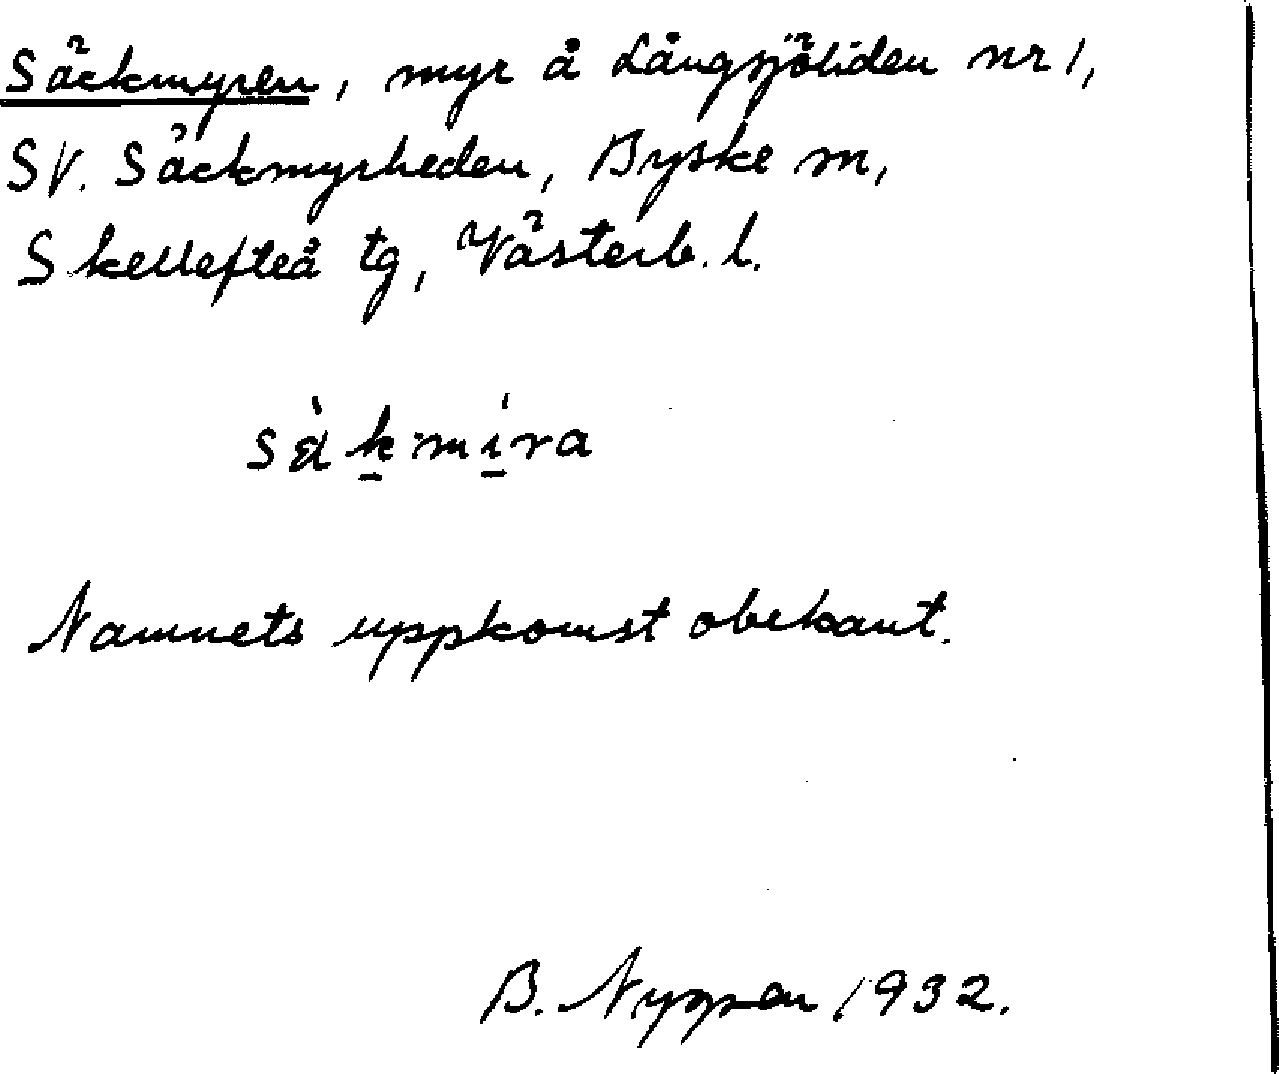 Säckmyren, myr å Långsjöliden nr 1,
SV. Säckmyrheden, Byske sn,
Skellefteå tg, Västerb. l.
sàkmíra
Namnets uppkomst obekant.
B. Nygren 1932.